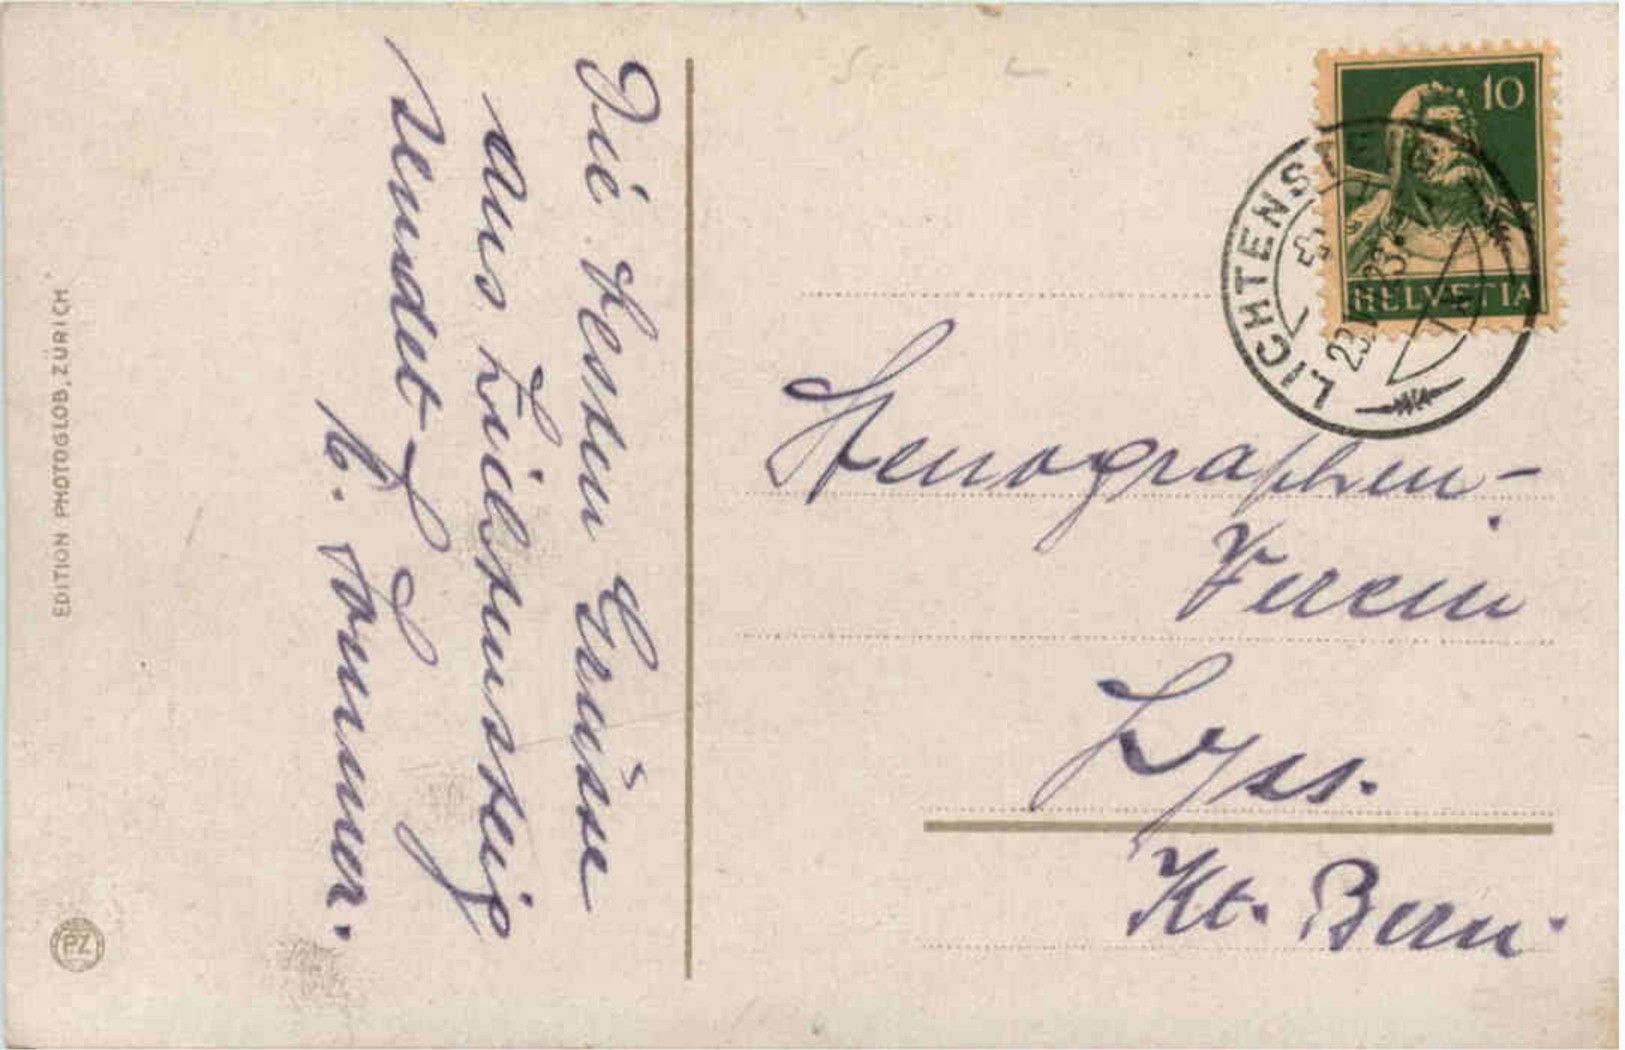 Die besten Grüsse
aus Lichtensteig
sendet
H. Sommer.
Stenographen-
Verein
Lyss.
Kt. Bern.
10
HELVETIA
LICHTENSTEIG
EDITION PHOTOGLOB, ZÜRICH
PZ